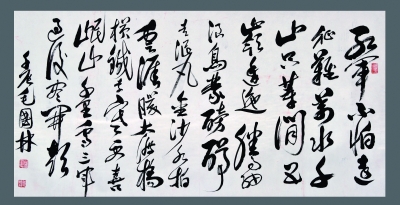 红军不怕远
征難萬水千
山只等闲五
嶺逶迤腾细
浪烏蒙磅礴
走泥丸金沙水拍
雲崖暖大渡橋
横鐵索寒更喜
岷山千里雪三军
过後尽開颜
毛國林